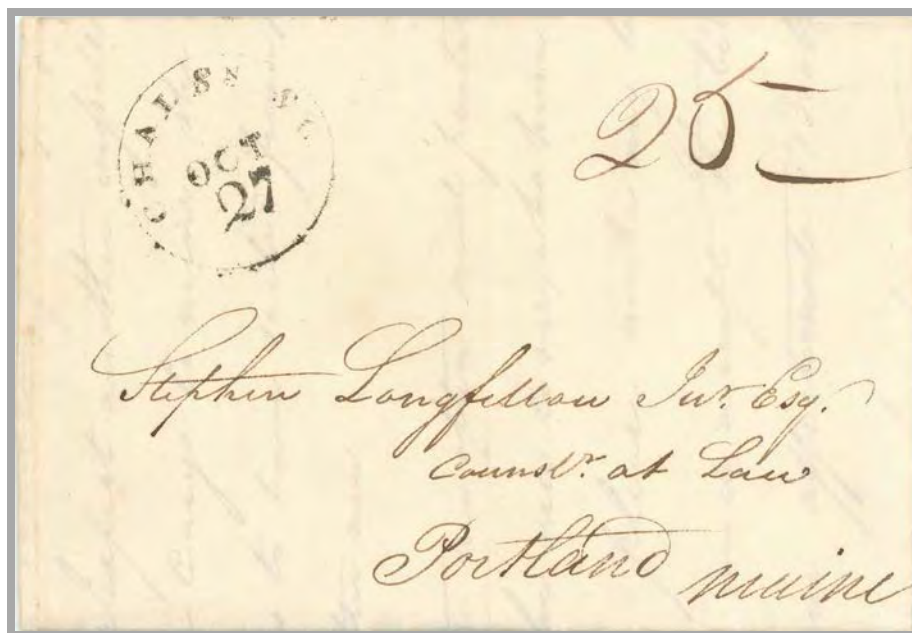 OCT
27
25
Stephen Longfellow Jur. Esq.
Counslr. at Law
Portland maine